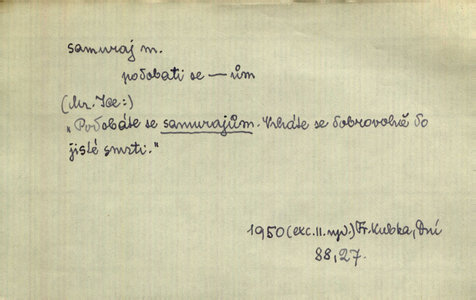 samuraj m.
podobati se — ům
(Mr. Ice:)
"Podobáte se samurajům. Vrháte se dobrovolně do
jisté smrti."
1950 (exc. II. vyd.) Fr. Kubka, Dní
88, 27.